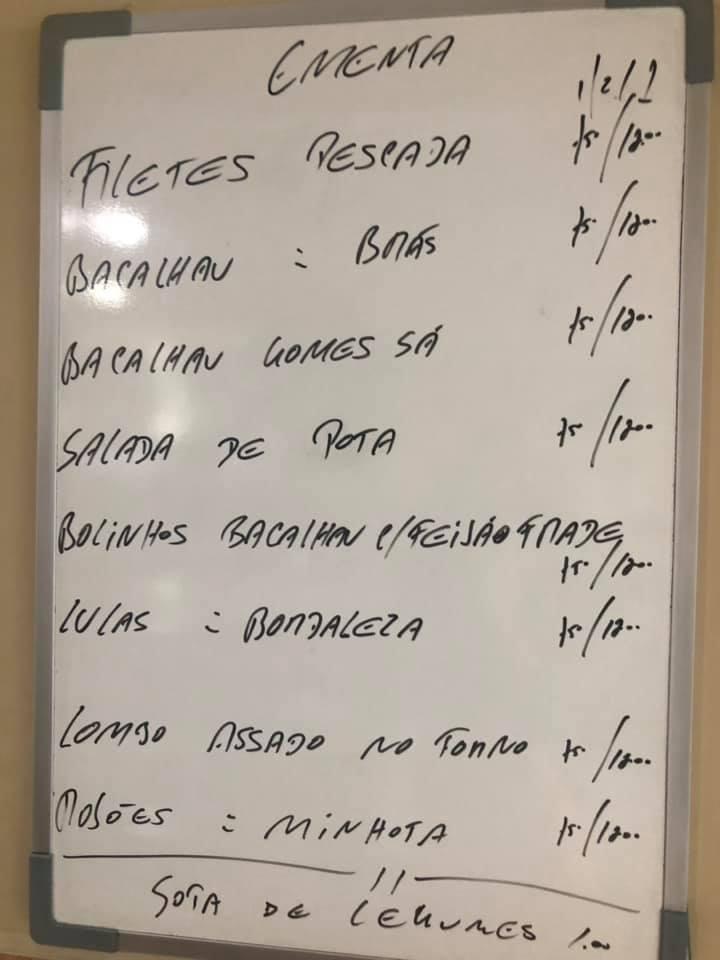 EMENTA
1/2 / 1
FILETES PESCADA 75/1200
BACALHAU = BRÁS 75/1200
BACALHAU GOMES SÁ 75/1200
SALADA DE POTA 75/1200
BOLINHOS BACALHAU C/FEIJÃO FRADE
75/1200
LULAS = BORDALEZA 75/1200
LOMBO ASSADO NO FORNO 75/1200
ROJÕES = MINHOTA 75/1200
SOPA DE LEGUMES 1.00